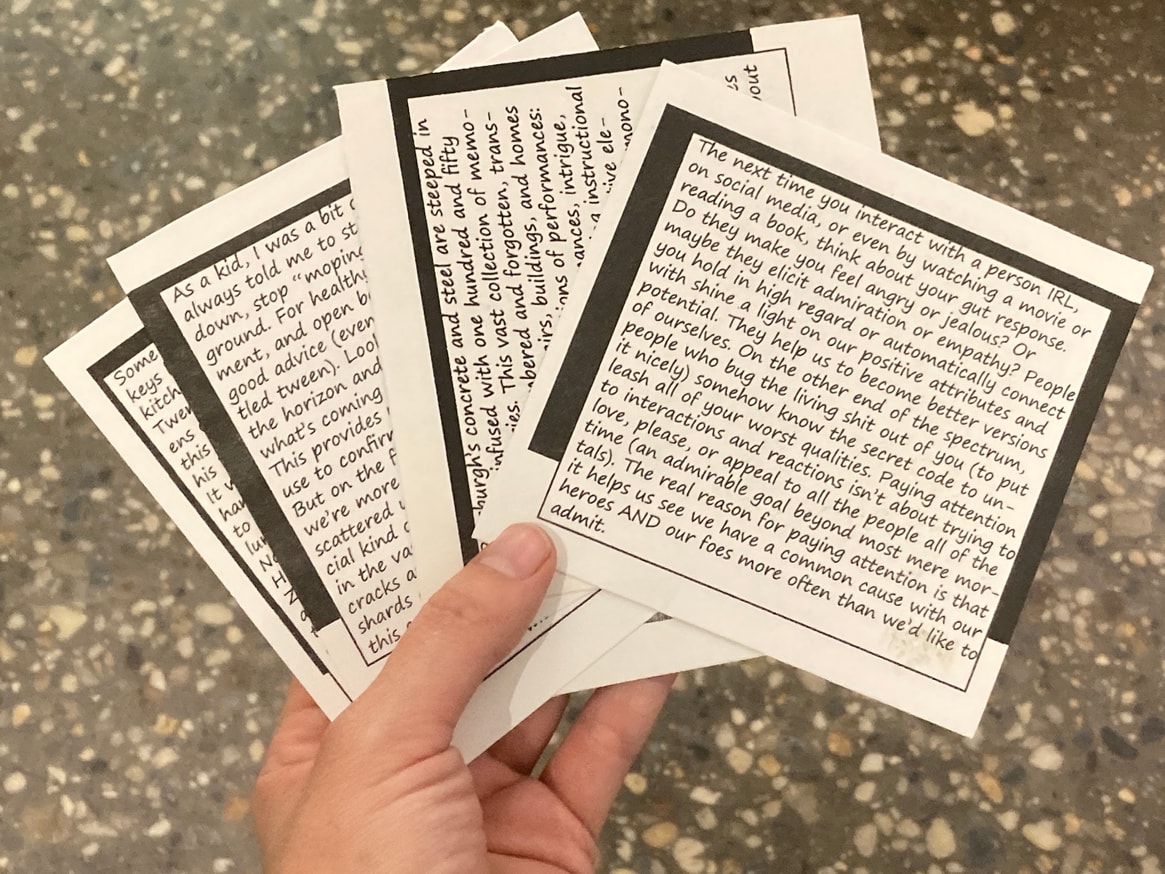 Some
keys
kitch
Twen
ens
this
his
It
han
to
lun
N
H
As a kid, I was a bit
always told me to st
down, stop "moping
ground. For health
ment, and open b
good advice (even
tled tween). Look
the horizon and
what's coming
This provides
use to confirm
But on the f
we're more
scattered
cial kind
in the va
cracks a
shards
this
burgh's concrete and steel are steeped in
infused with one hundred and fifty
ies. This vast collection of memo-
bered and forgotten, trans-
irs, buildings, and homes
ons of performances:
ances, intrigue,
a instructional
ive ele-
mono-
es
out
The next time you interact with a person IRL,
on social media, or even by watching a movie or
reading a book, think about your gut response.
Do they make you feel angry or jealous? Or
maybe they elicit admiration or empathy? People
you hold in high regard or automatically connect
with shine a light on our positive attributes and
potential. They help us to become better versions
of ourselves. On the other end of the spectrum,
people who bug the living shit out of you (to put
it nicely) somehow know the secret code to un-
leash all of your worst qualities. Paying attention
to interactions and reactions isn't about trying to
love, please, or appeal to all the people all of the
time (an admirable goal beyond most mere mor-
tals). The real reason for paying attention is that
it helps us see we have a common cause with our
heroes AND our foes more often than we'd like to
admit.